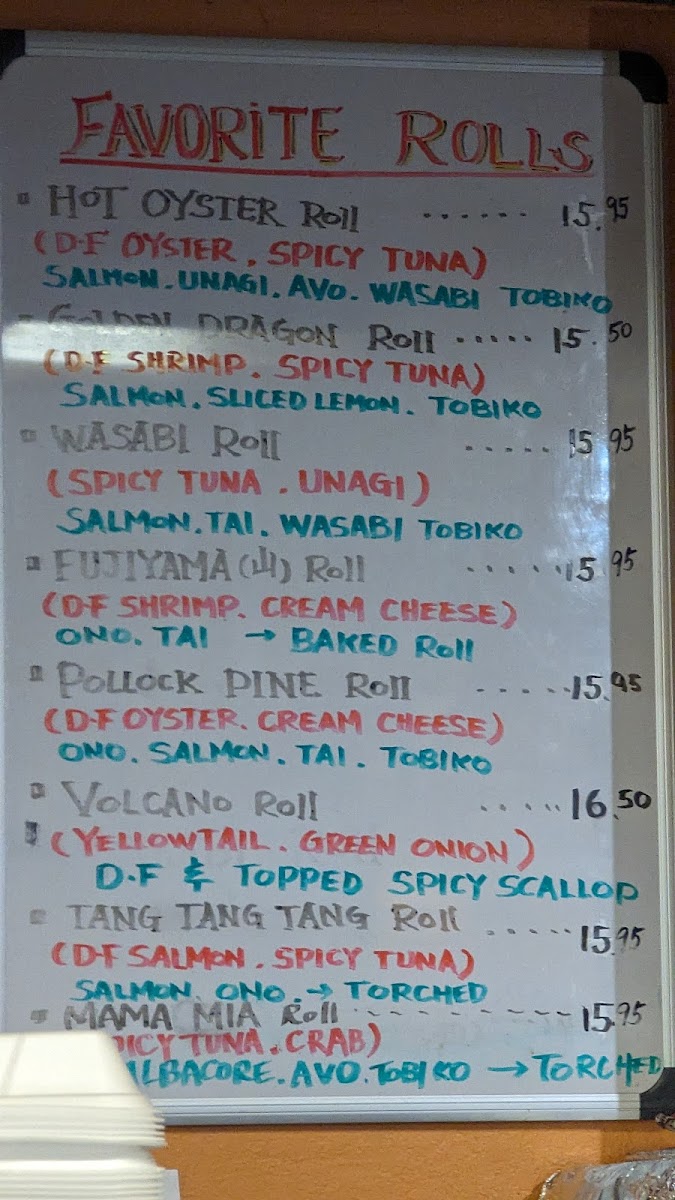 FAVORITE ROLLS
HOT OYSTER Roll ...... 15.95
(D.F OYSTER, SPICY TUNA)
SALMON. UNAGI. AVO. WASABI TOBIKO
GOLDEN DRAGON Roll ..... 15.50
(D.F SHRIMP. SPICY TUNA)
SALMON. SLICED LEMON. TOBIKO
WASABI Roll ..... 15.95
(SPICY TUNA. UNAGI)
SALMON. TAI. WASABI TOBIKO
FUJIYAMA (山) Roll ...... 15.95
(D.F SHRIMP. CREAM CHEESE)
ONO. TAI → BAKED Roll
POLLOCK PINE Roll ..... 15.95
(D.F OYSTER. CREAM CHEESE)
ONO. SALMON. TAI. TOBIKO
VOLCANO Roll ..... 16.50
(YELLOWTAIL. GREEN ONION)
D.F & TOPPED SPICY SCALLOP
TANG TANG TANG Roll ..... 15.95
(D.F SALMON. SPICY TUNA)
SALMON. ONO. → TORCHED
MAMA MIA Roll --------- 15.95
TUNA. CRAB)
ALBACORE. AVO. TOBIKO → TORCHED